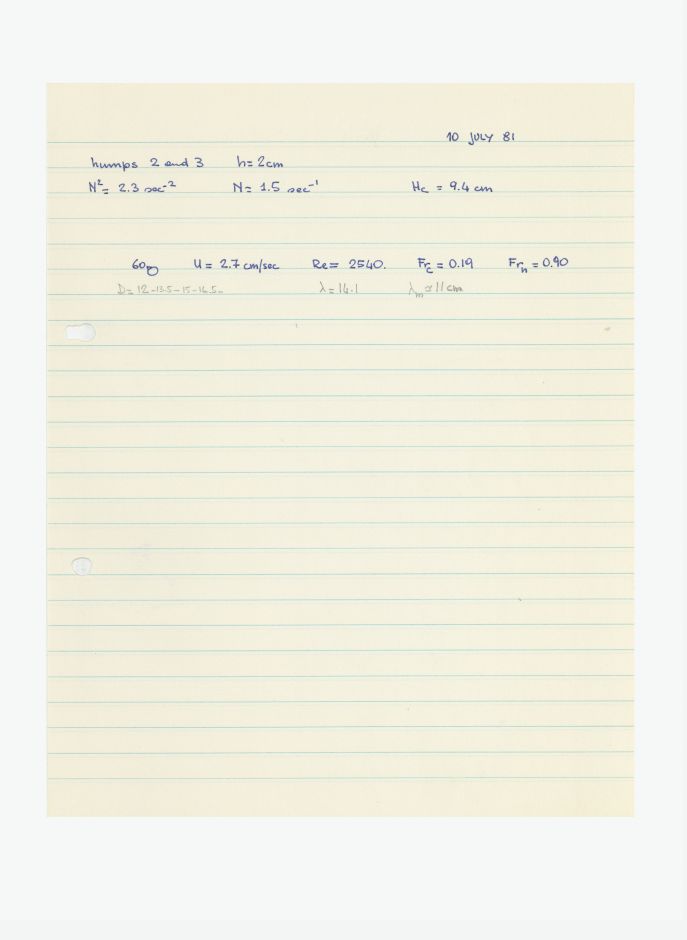 10 JULY 81
humps 2 and 3 h=2cm
N²= 2.3 sec⁻² N= 1.5 sec⁻¹ Hc = 9.4 cm
60g U = 2.7 cm/sec Re= 2540. Frc = 0.19 Frh = 0.90
D= 12-13.5-15-16.5- λ=14.1 λm ≃ 11 cm